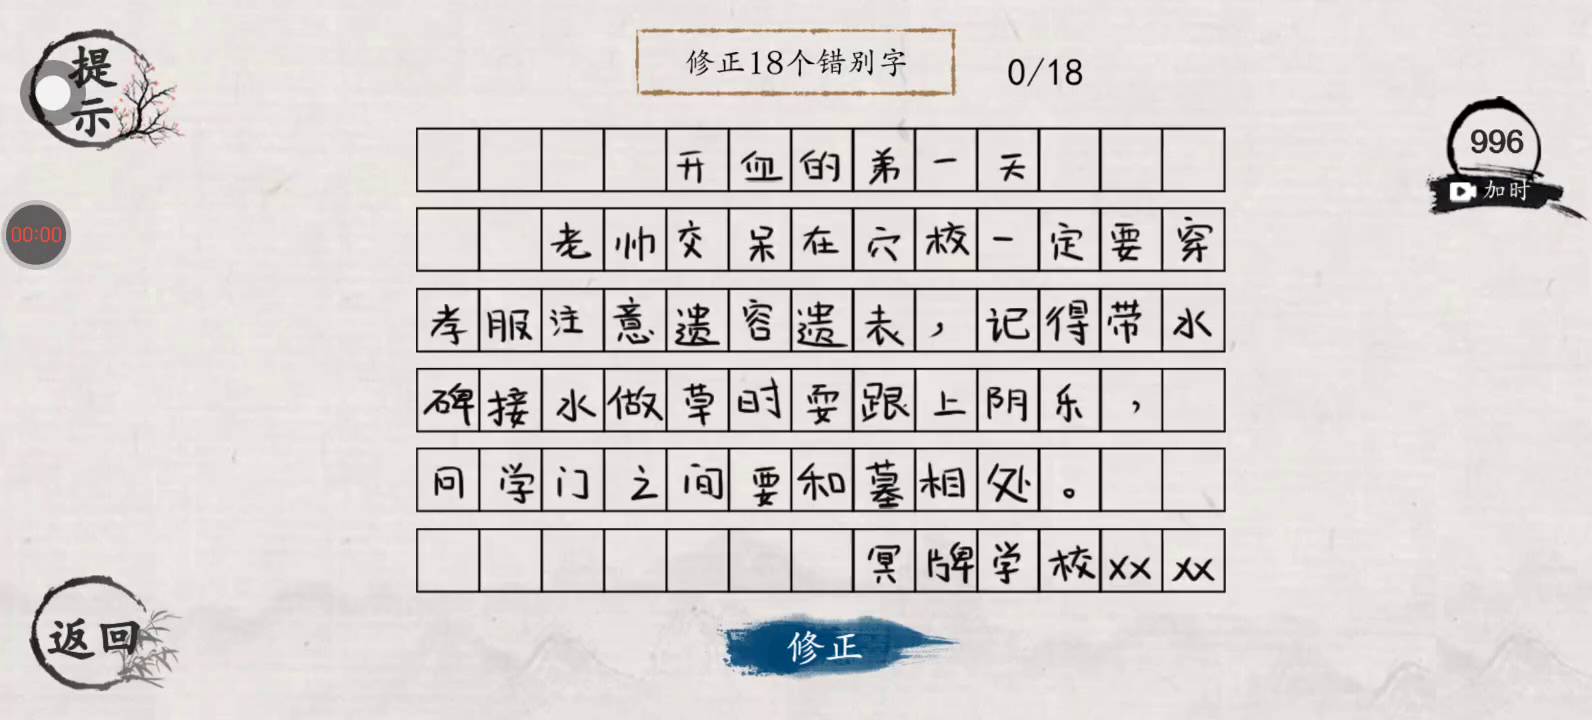 提示
修正18个错别字
0/18
996
加时
00:00
开血的弟一天
老帅交呆在穴校一定要穿
孝服注意遗容遗表，记得带水
碑接水做草时耍跟上阴乐，
同学门之间要和墓相处。
冥牌学校xxxx
返回
修正